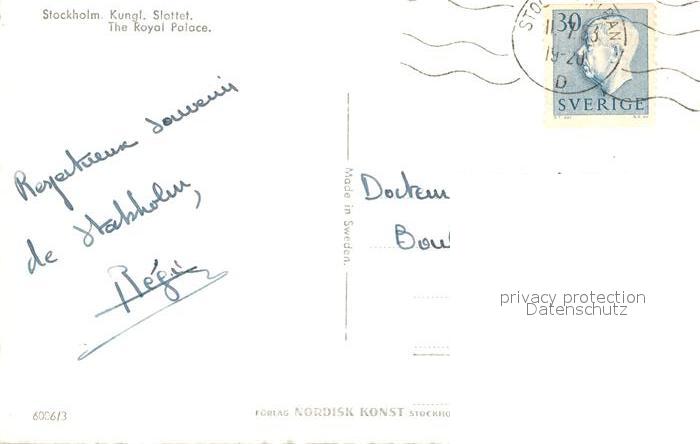 Stockholm. Kungl. Slottet.
The Royal Palace.
Respectueux souvenir
de Stokholm,
Régis
Made in Sweden.
30
SVERIGE
11.7.53
19-20
D
Docteur
Bou
privacy protection
Datenschutz
6006/3
FÖRLAG NORDISK KONST STOCKHO